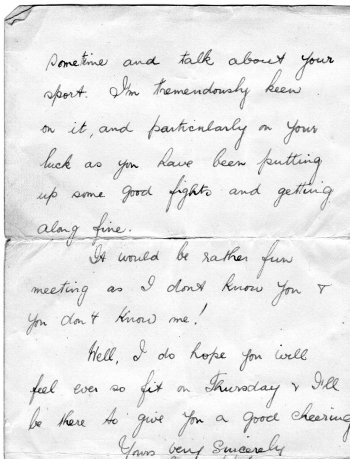 sometime and talk about your
sport. I'm tremendously keen
on it, and particularly on your
luck as you have been putting
up some good fights and getting
along fine.
It would be rather fun
meeting as I don't know you &
you don't know me!
Well, I do hope you will
feel ever so fit on Thursday & I'll
be there to give you a good cheering
Yours very Sincerely